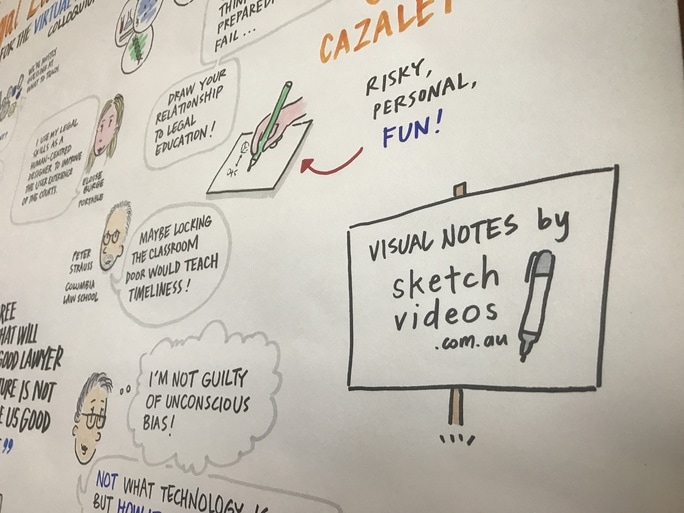 FOR THE VIRTUAL
COLLOQUIUM
PREPARED,
FAIL...
CAZALET
DRAW YOUR
RELATIONSHIP
TO LEGAL
EDUCATION!
RISKY,
PERSONAL,
FUN!
I USE MY LEGAL
SKILLS AS A
HUMAN-CENTRED
DESIGNER TO IMPROVE
THE USER EXPERIENCE
OF THE COURTS.
ELOISE
BURGE
PORTABLE
PETER
STRAUSS
COLUMBIA
LAW SCHOOL
MAYBE LOCKING
THE CLASSROOM
DOOR WOULD TEACH
TIMELINESS!
HAT WILL
GOOD LAWYER
TURE IS NOT
E US GOOD
"
I'M NOT GUILTY
OF UNCONSCIOUS
BIAS!
NOT WHAT TECHNOLOGY
BUT
VISUAL NOTES by
sketch
videos
.com.au